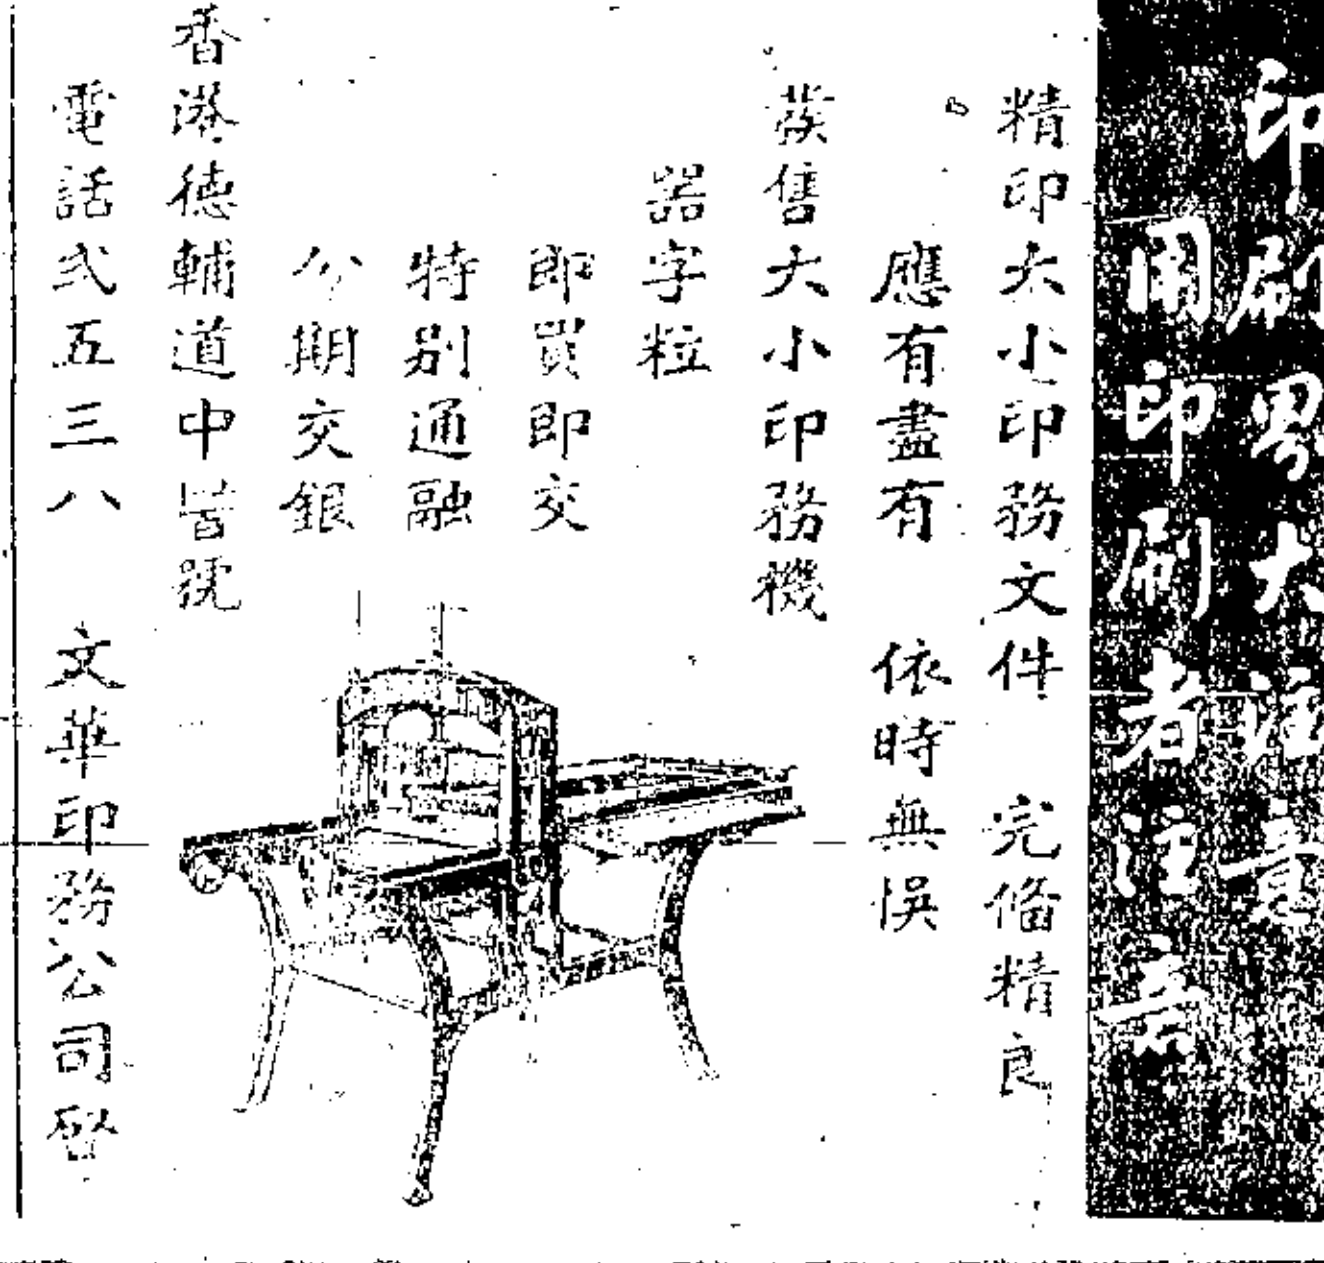 印刷界大注意
用印刷者注意
精印大小印務文件 完俻精良
應有盡有 依時無悞
發售大小印務機
器字粒
即買即交
特别通融
分期交銀
香港德輔道中號
電話弍五三八 文華印務公司啓